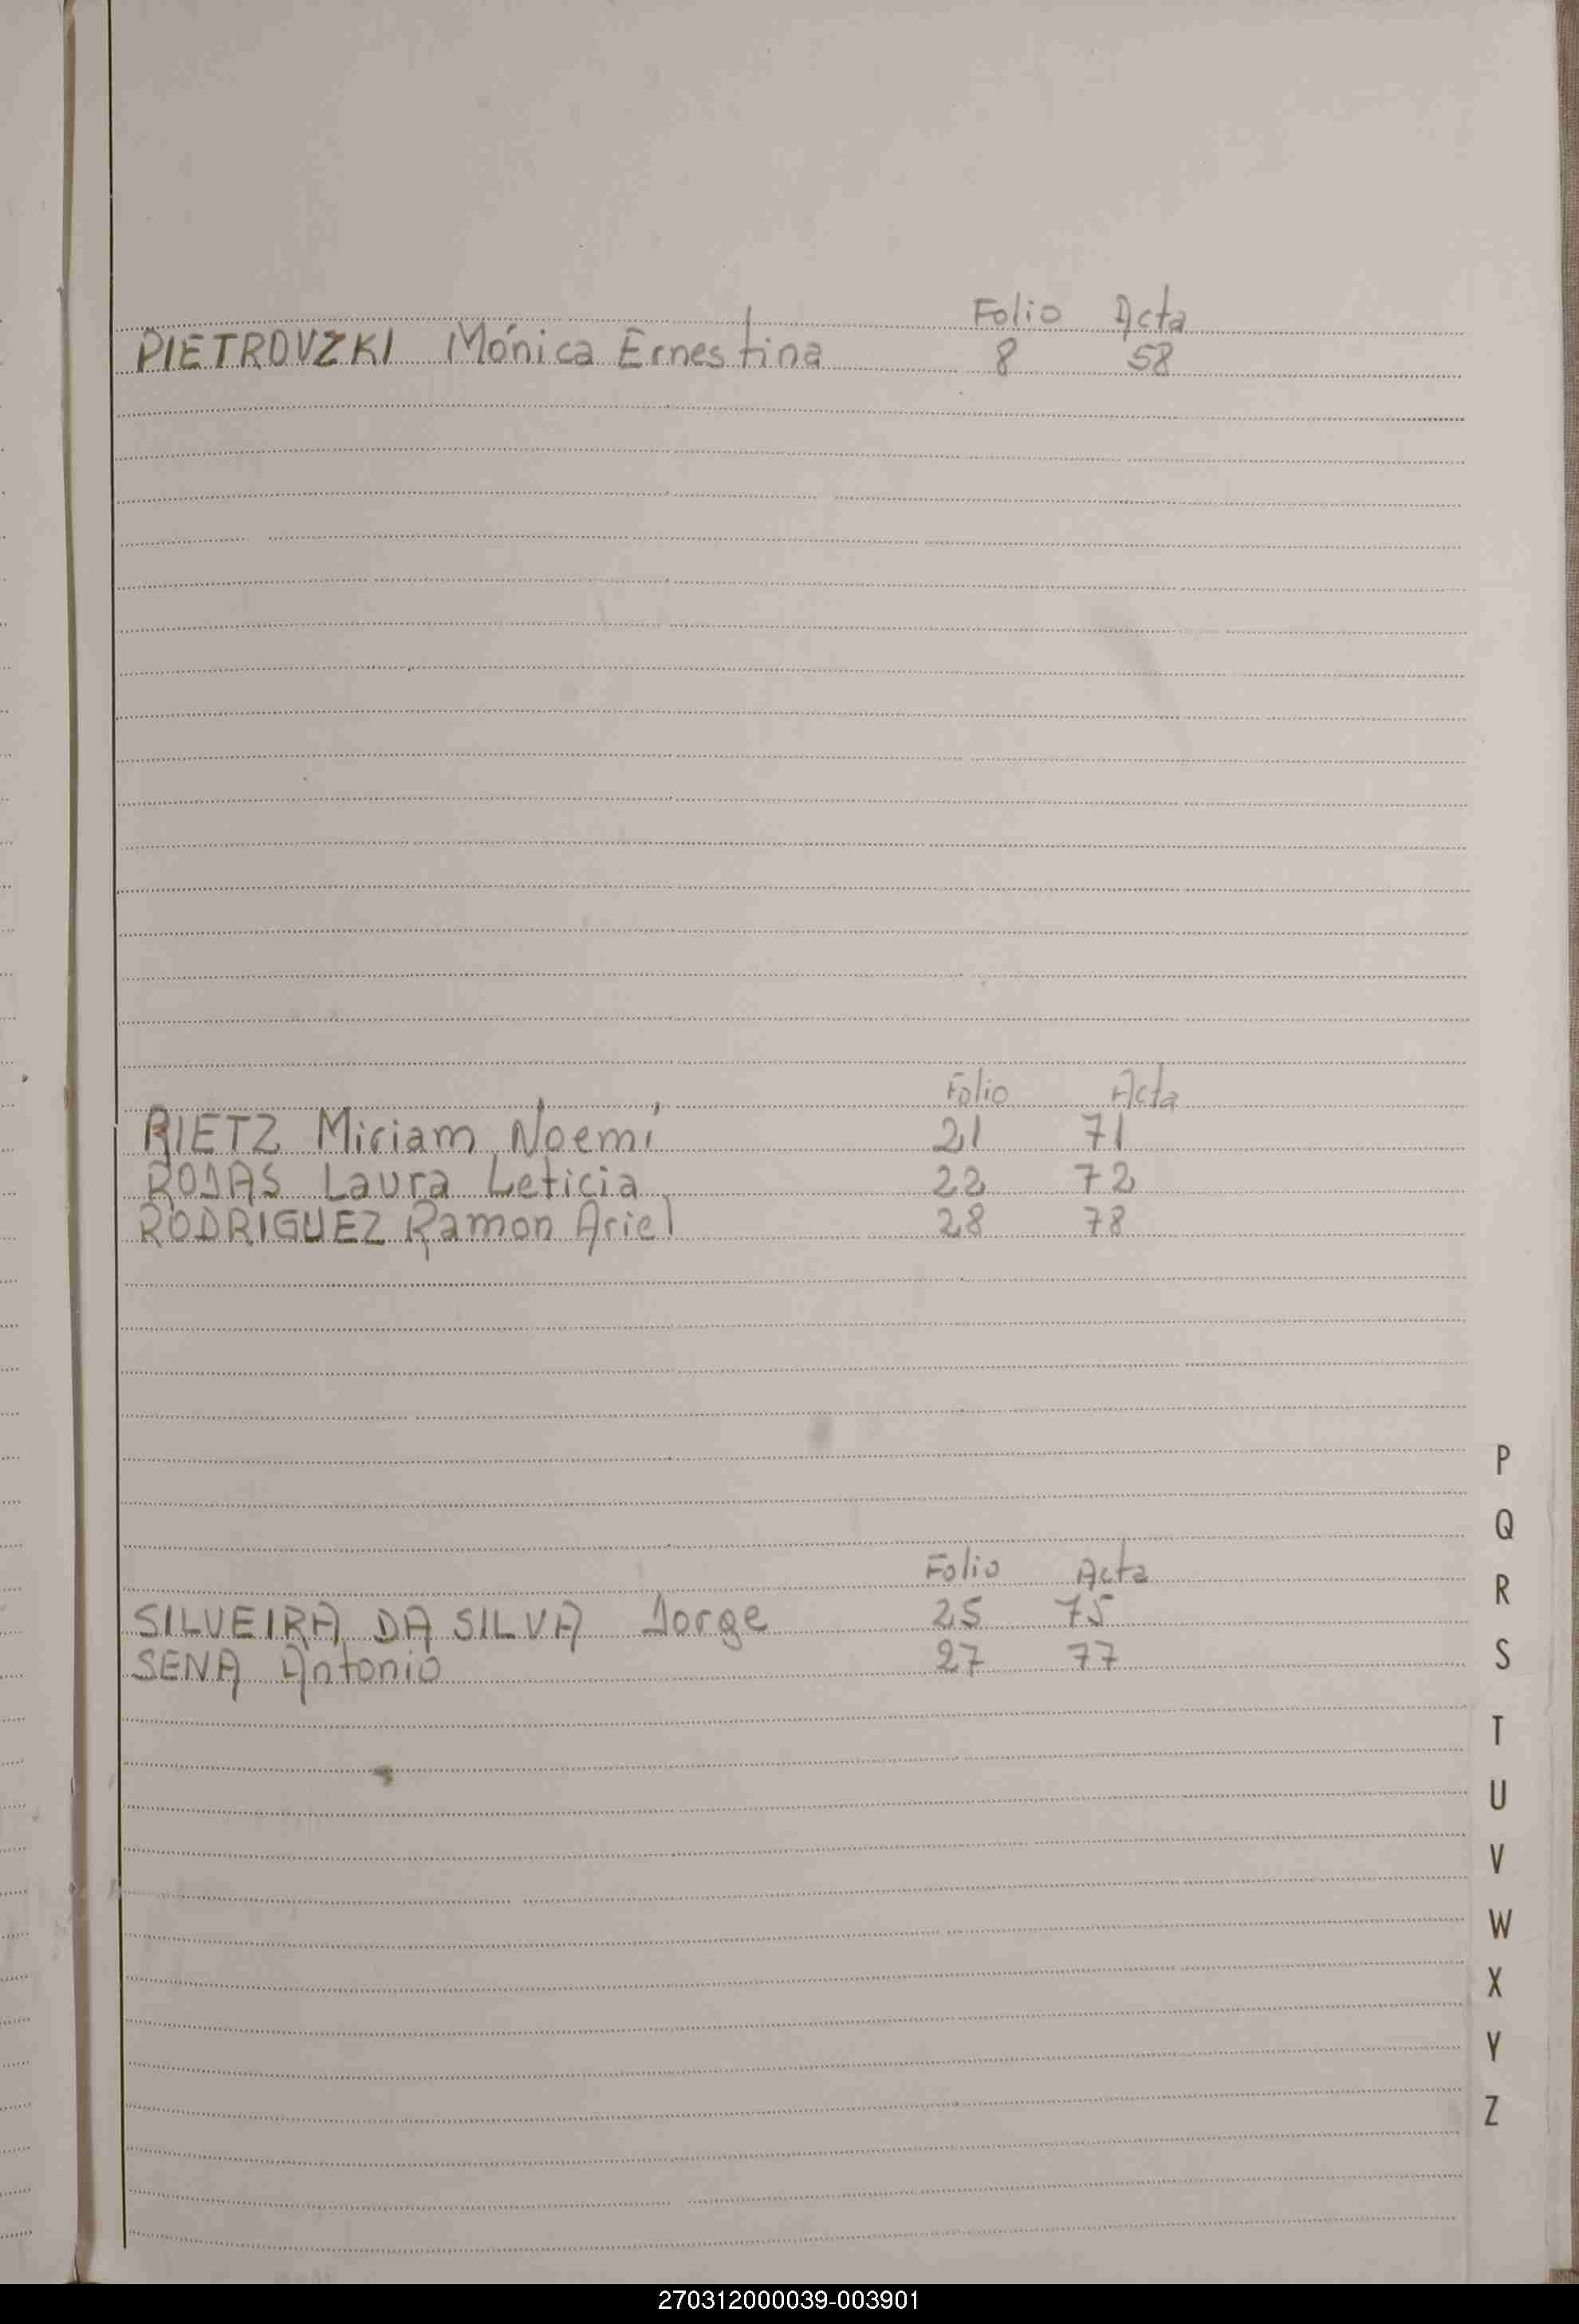 Folio Acta
PIETROVZKI Mónica Ernestina 8 58
Folio Acta
RIETZ Miriam Noemí 21 71
ROJAS Laura Leticia 22 72
RODRIGUEZ Ramon Ariel 28 78
Folio Acta
SILVEIRA DA SILVA Jorge 25 75
SENA Antonio 27 77
P
Q
R
S
T
U
V
W
X
Y
Z
270312000039-003901